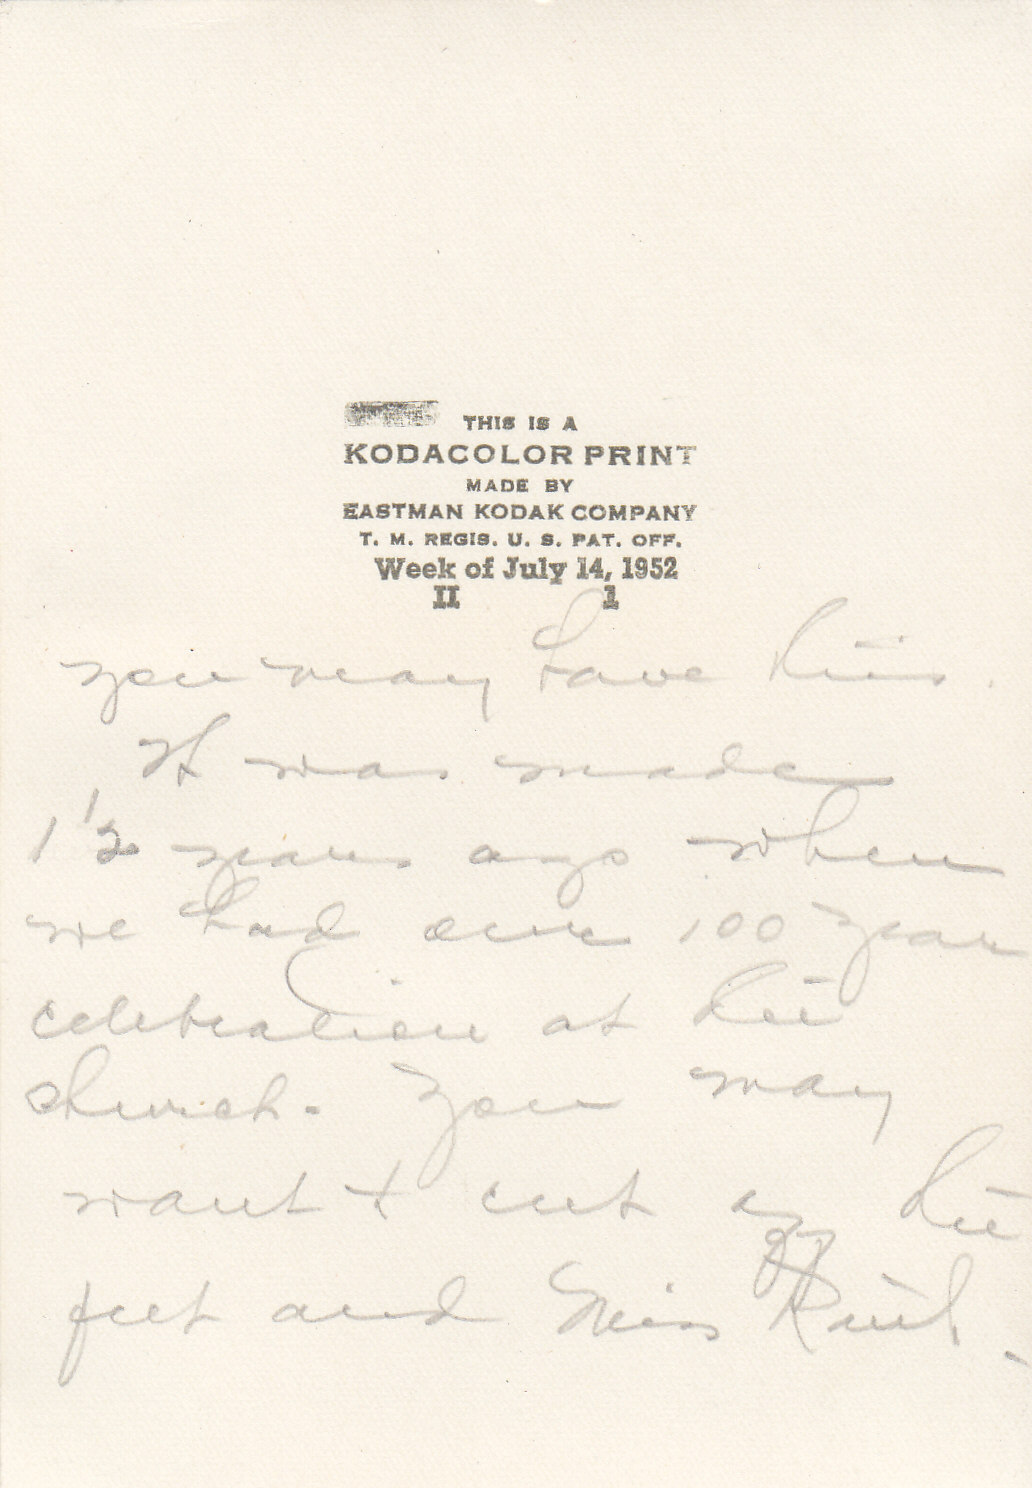 THIS IS A
KODACOLOR PRINT
MADE BY
EASTMAN KODAK COMPANY
T. M. REGIS. U. S. PAT. OFF.
Week of July 14, 1952
II 1
you may have this.
It was made
years ago when
we had our 100 year
celebration at the
church. You may
want to cut off the
feet and Miss